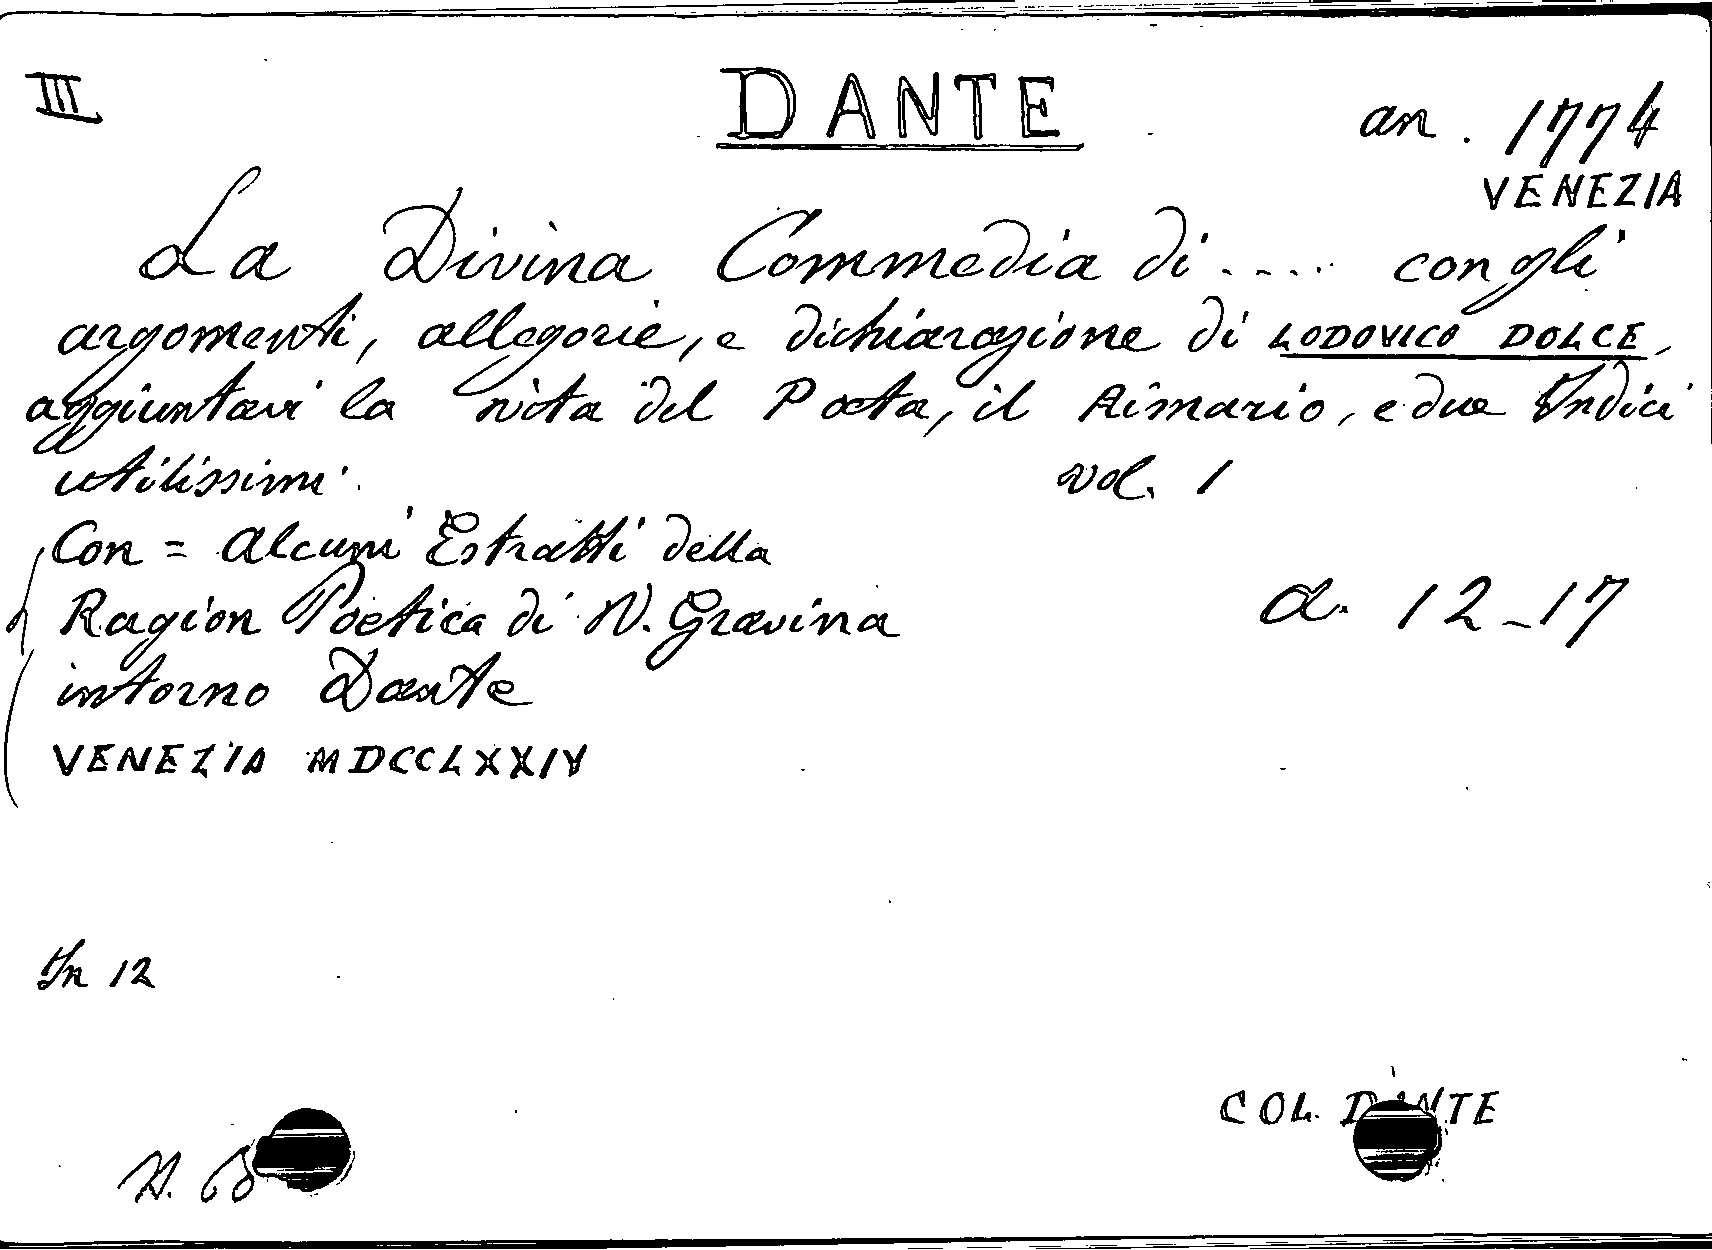 III DANTE an. 1774
VENEZIA
La Divina Commedia di .... con gli
argomenti, allegorie, e dichiarazione di LODOVICO DOLCE,
aggiuntavi la vita del Poeta, il Rimario, e due Indici
utilissimi. vol. 1
Con = Alcuni Estratti della
Ragion Poetica di N. Gravina a. 12-17
intorno Dante
VENEZIA MDCCLXXIV
In 12
COL. DANTE
N.